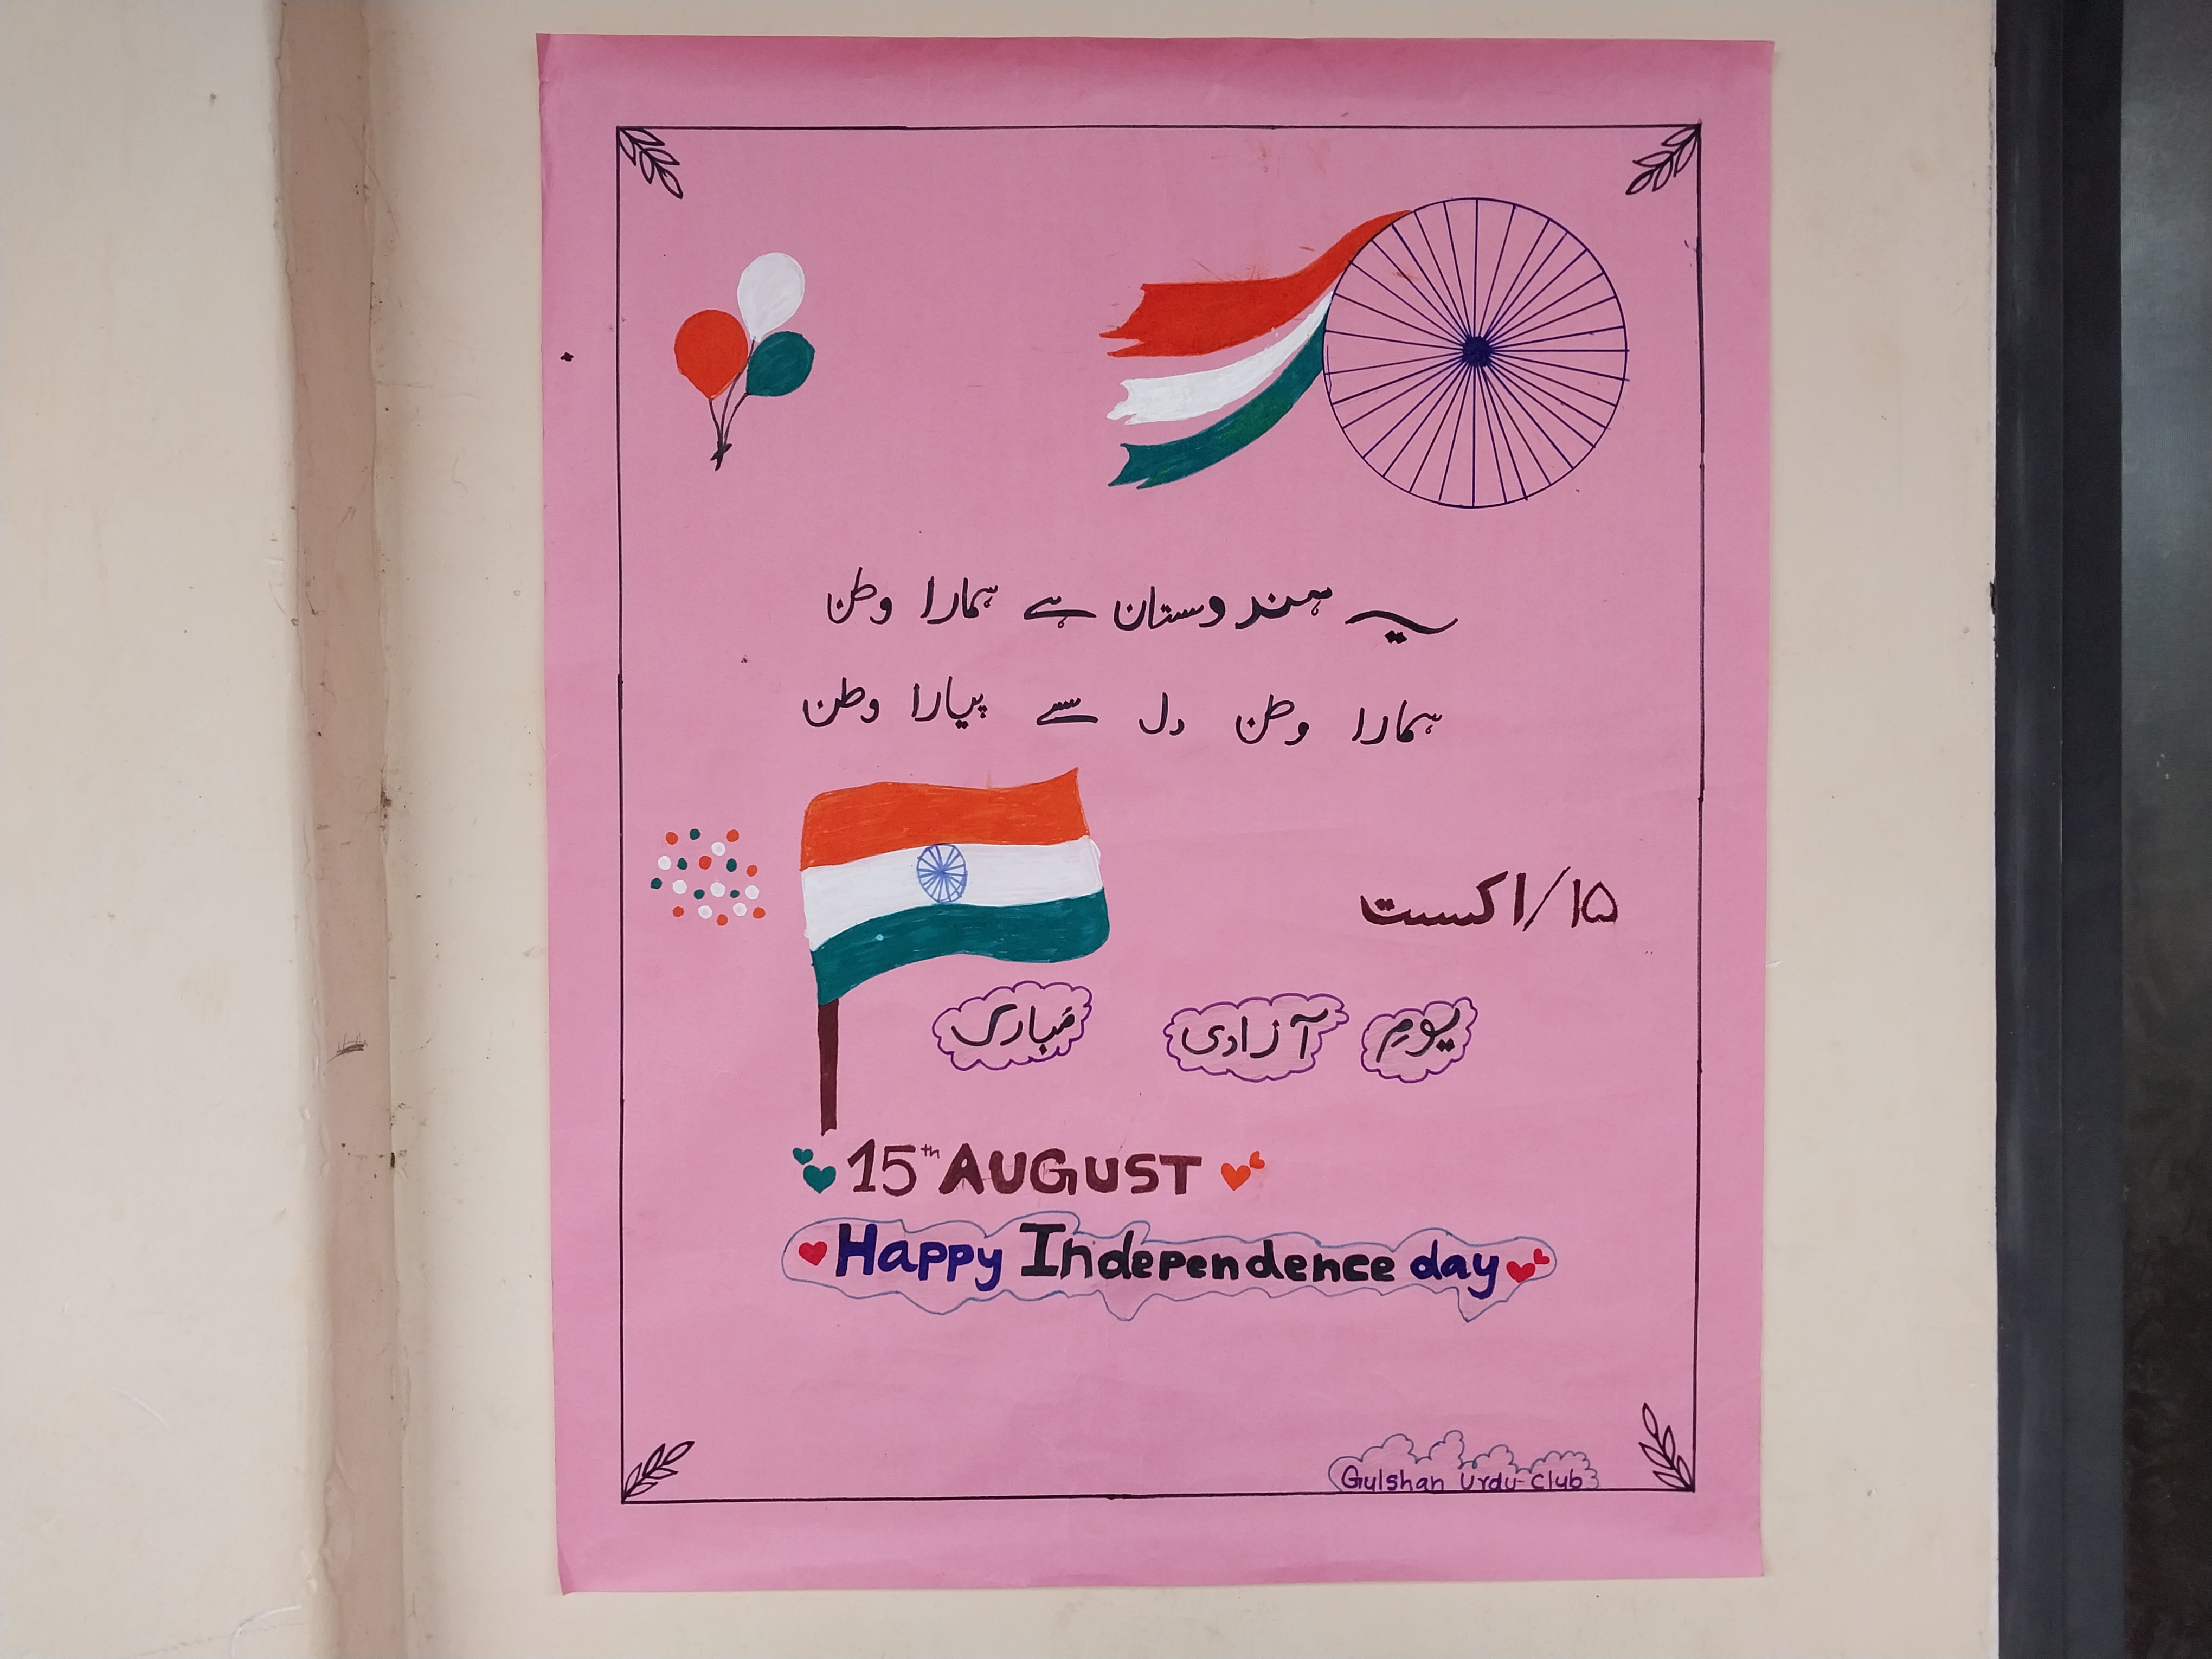 یہ ہندوستان ہے ہمارا وطن
ہمارا وطن دل سے پیارا وطن
۱۵/اکست
یومِ آزادی مُبارک
15th AUGUST
Happy Independence day
Gulshan Urdu-Club